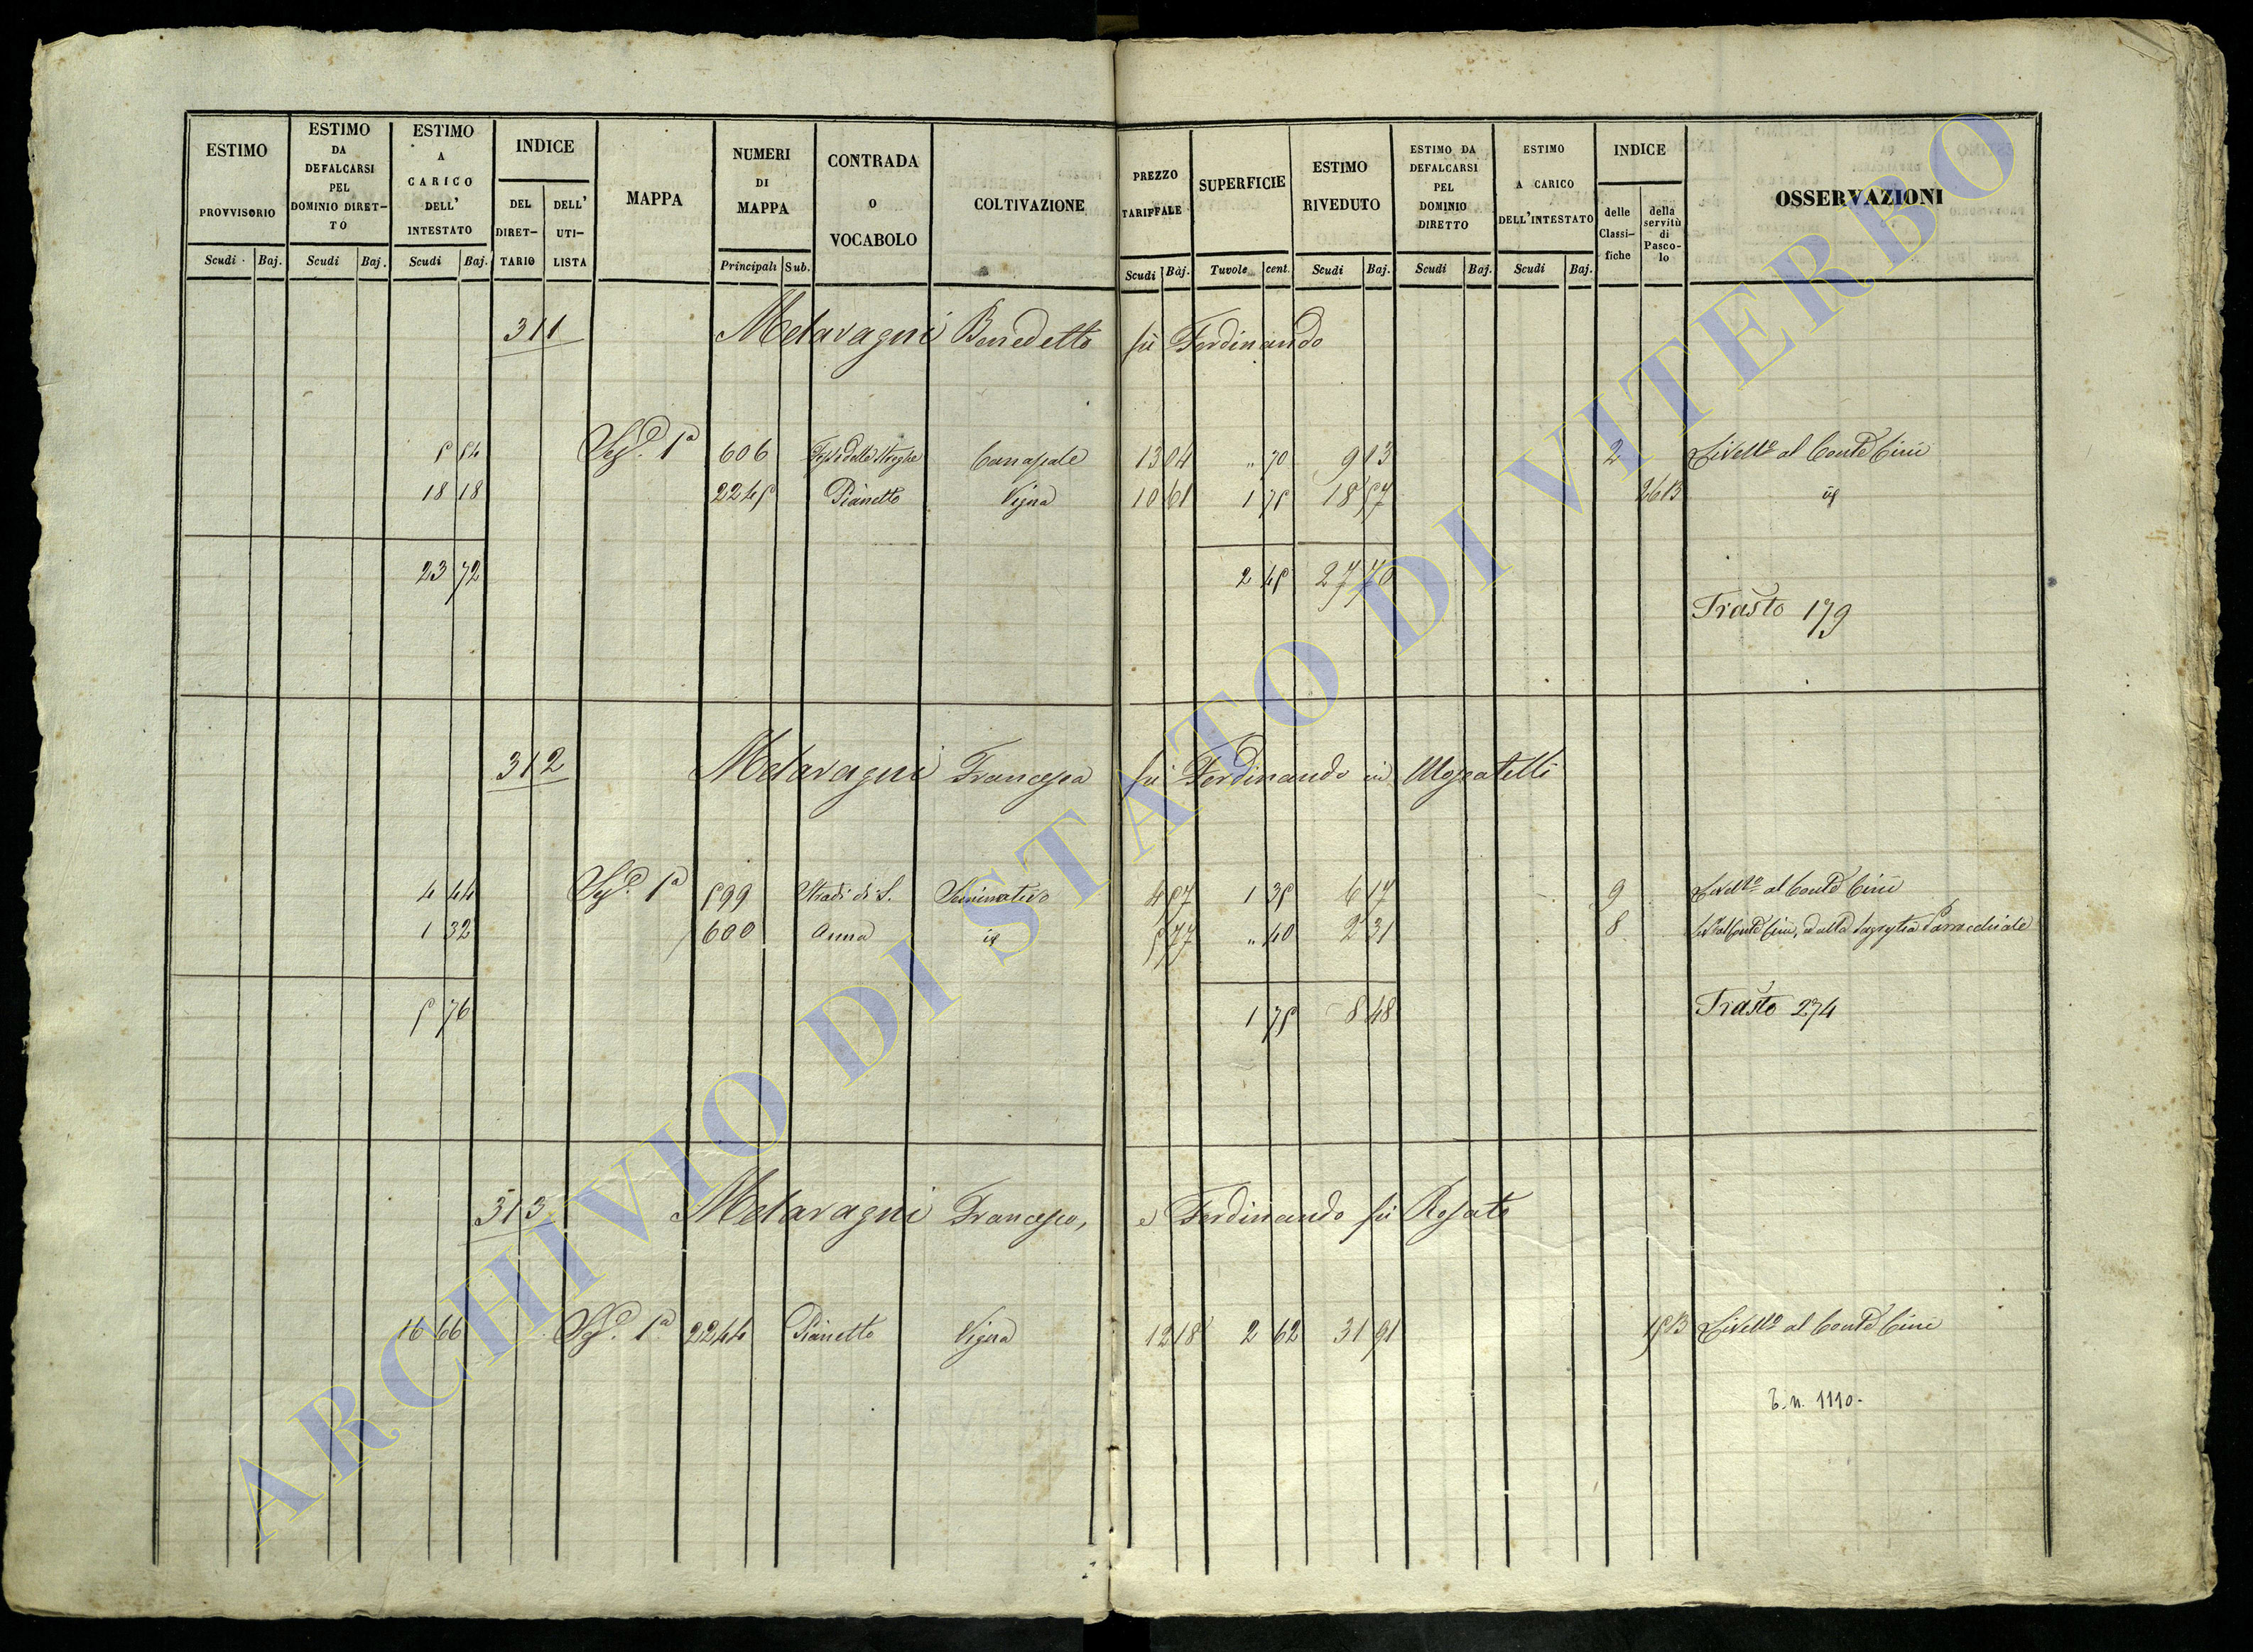 ESTIMO PROVVISORIO Scudi Baj.
ESTIMO DA DEFALCARSI PEL DOMINIO DIRET-TO Scudi Baj.
ESTIMO A CARICO DELL' INTESTATO Scudi Baj.
INDICE DEL DIRET-TARIO DELL' UTI-LISTA
MAPPA
NUMERI DI MAPPA Principali Sub.
CONTRADA O VOCABOLO
COLTIVAZIONE
PREZZO TARIFFALE Scudi Baj.
SUPERFICIE Tavole cent.
ESTIMO RIVEDUTO Scudi Baj.
ESTIMO DA DEFALCARSI PEL DOMINIO DIRETTO Scudi Baj.
ESTIMO A CARICO DELL'INTESTATO Scudi Baj.
INDICE delle Classi-fiche della servitù di Pasco-lo
OSSERVAZIONI
311 Metavagni Benedetto fù Ferdinando
5 54 Sez.e 1a 606 delle Canapale 13 04 " 70 9 13 2 Livell.o al Conte Cini
18 18 2245 Pianetto Vigna 10 61 1 75 18 57 26 13 id
23 72 2 45 27 70
Trasto 179
312 Metavagni Francesca fù Ferdinando in Moscatelli
4 44 Sez.e 1a 599 Stradi di S. Seminativo 4 57 1 35 6 17 9 Livell.o al Conte Cini
1 32 600 Anna id 5 77 " 40 2 31 8 Liv.o al Conte Cini, ed alla Sagrestia Parrocchiale
5 76 1 75 8 48
Trasto 274
313 Metavagni Francesco, e Ferdinando fù Rosato
16 66 Sez.e 1a 2244 Pianetto Vigna 12 18 2 62 31 91 15 13 Livell.o al Conte Cini
T. n. 1110.
ARCHIVIO DI STATO DI VITERBO